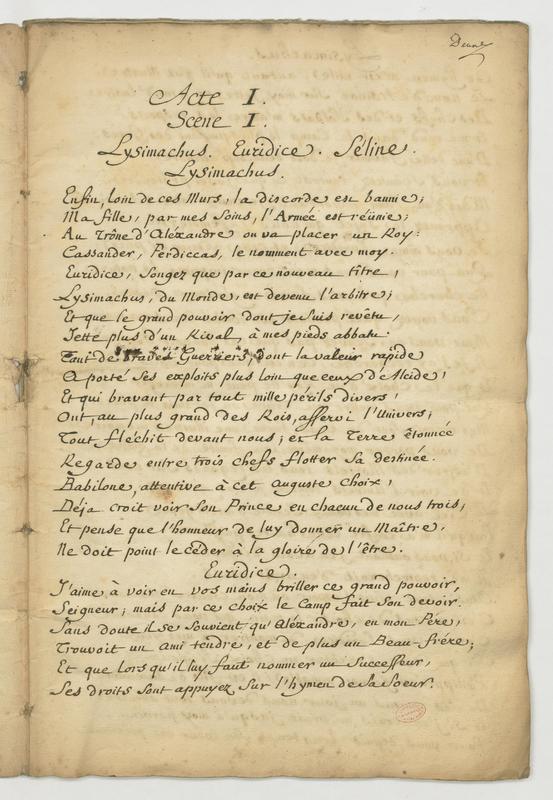 Acte I.
Scene I.
Lysimachus. Euridice. Séline.
Lysimachus.
Enfin, loin de ces Murs, la discorde est bannie;
Ma fille, par mes Soins, l'Armée est réünie;
Au Trône d'Aléxandre on va placer un Roy:
Cassander, Perdiccas, le nomment avec moy.
Euridice, Songez que par ce nouveau tître,
Lysimachus, du Monde, est devenu l'arbitre;
Et que le grand pouvoir dont je suis revêtu,
Jette plus d'un Rival, à mes pieds abbatu.
Tant de braves Guerriers, dont la valeur rapide
A porté ses exploits plus loin que ceux d'Alcide,
Et qui bravant par tout mille périls divers,
Ont, au plus grand des Rois, asservi l'Univers;
Tout fléchit devant nous; et la Terre étonnée
Regarde entre trois chefs flotter sa destinée.
Babilone, attentive à cet auguste choix,
Déja croit voir son Prince en chacun de nous trois;
Et pense que l'honneur de luy donner un Maître,
Ne doit point le céder à la gloire de l'être.
Euridice.
J'aime à voir en vos mains briller ce grand pouvoir,
Seigneur; mais par ce choix le Camp fait son devoir.
Sans doute il se souvient qu'Aléxandre, en mon Pére,
Trouvoit un ami tendre, et de plus un Beau-frére;
Et que lors qu'il luy faut nommer un Successeur,
Ses droits sont appuyez sur l'hymen de sa Soeur.